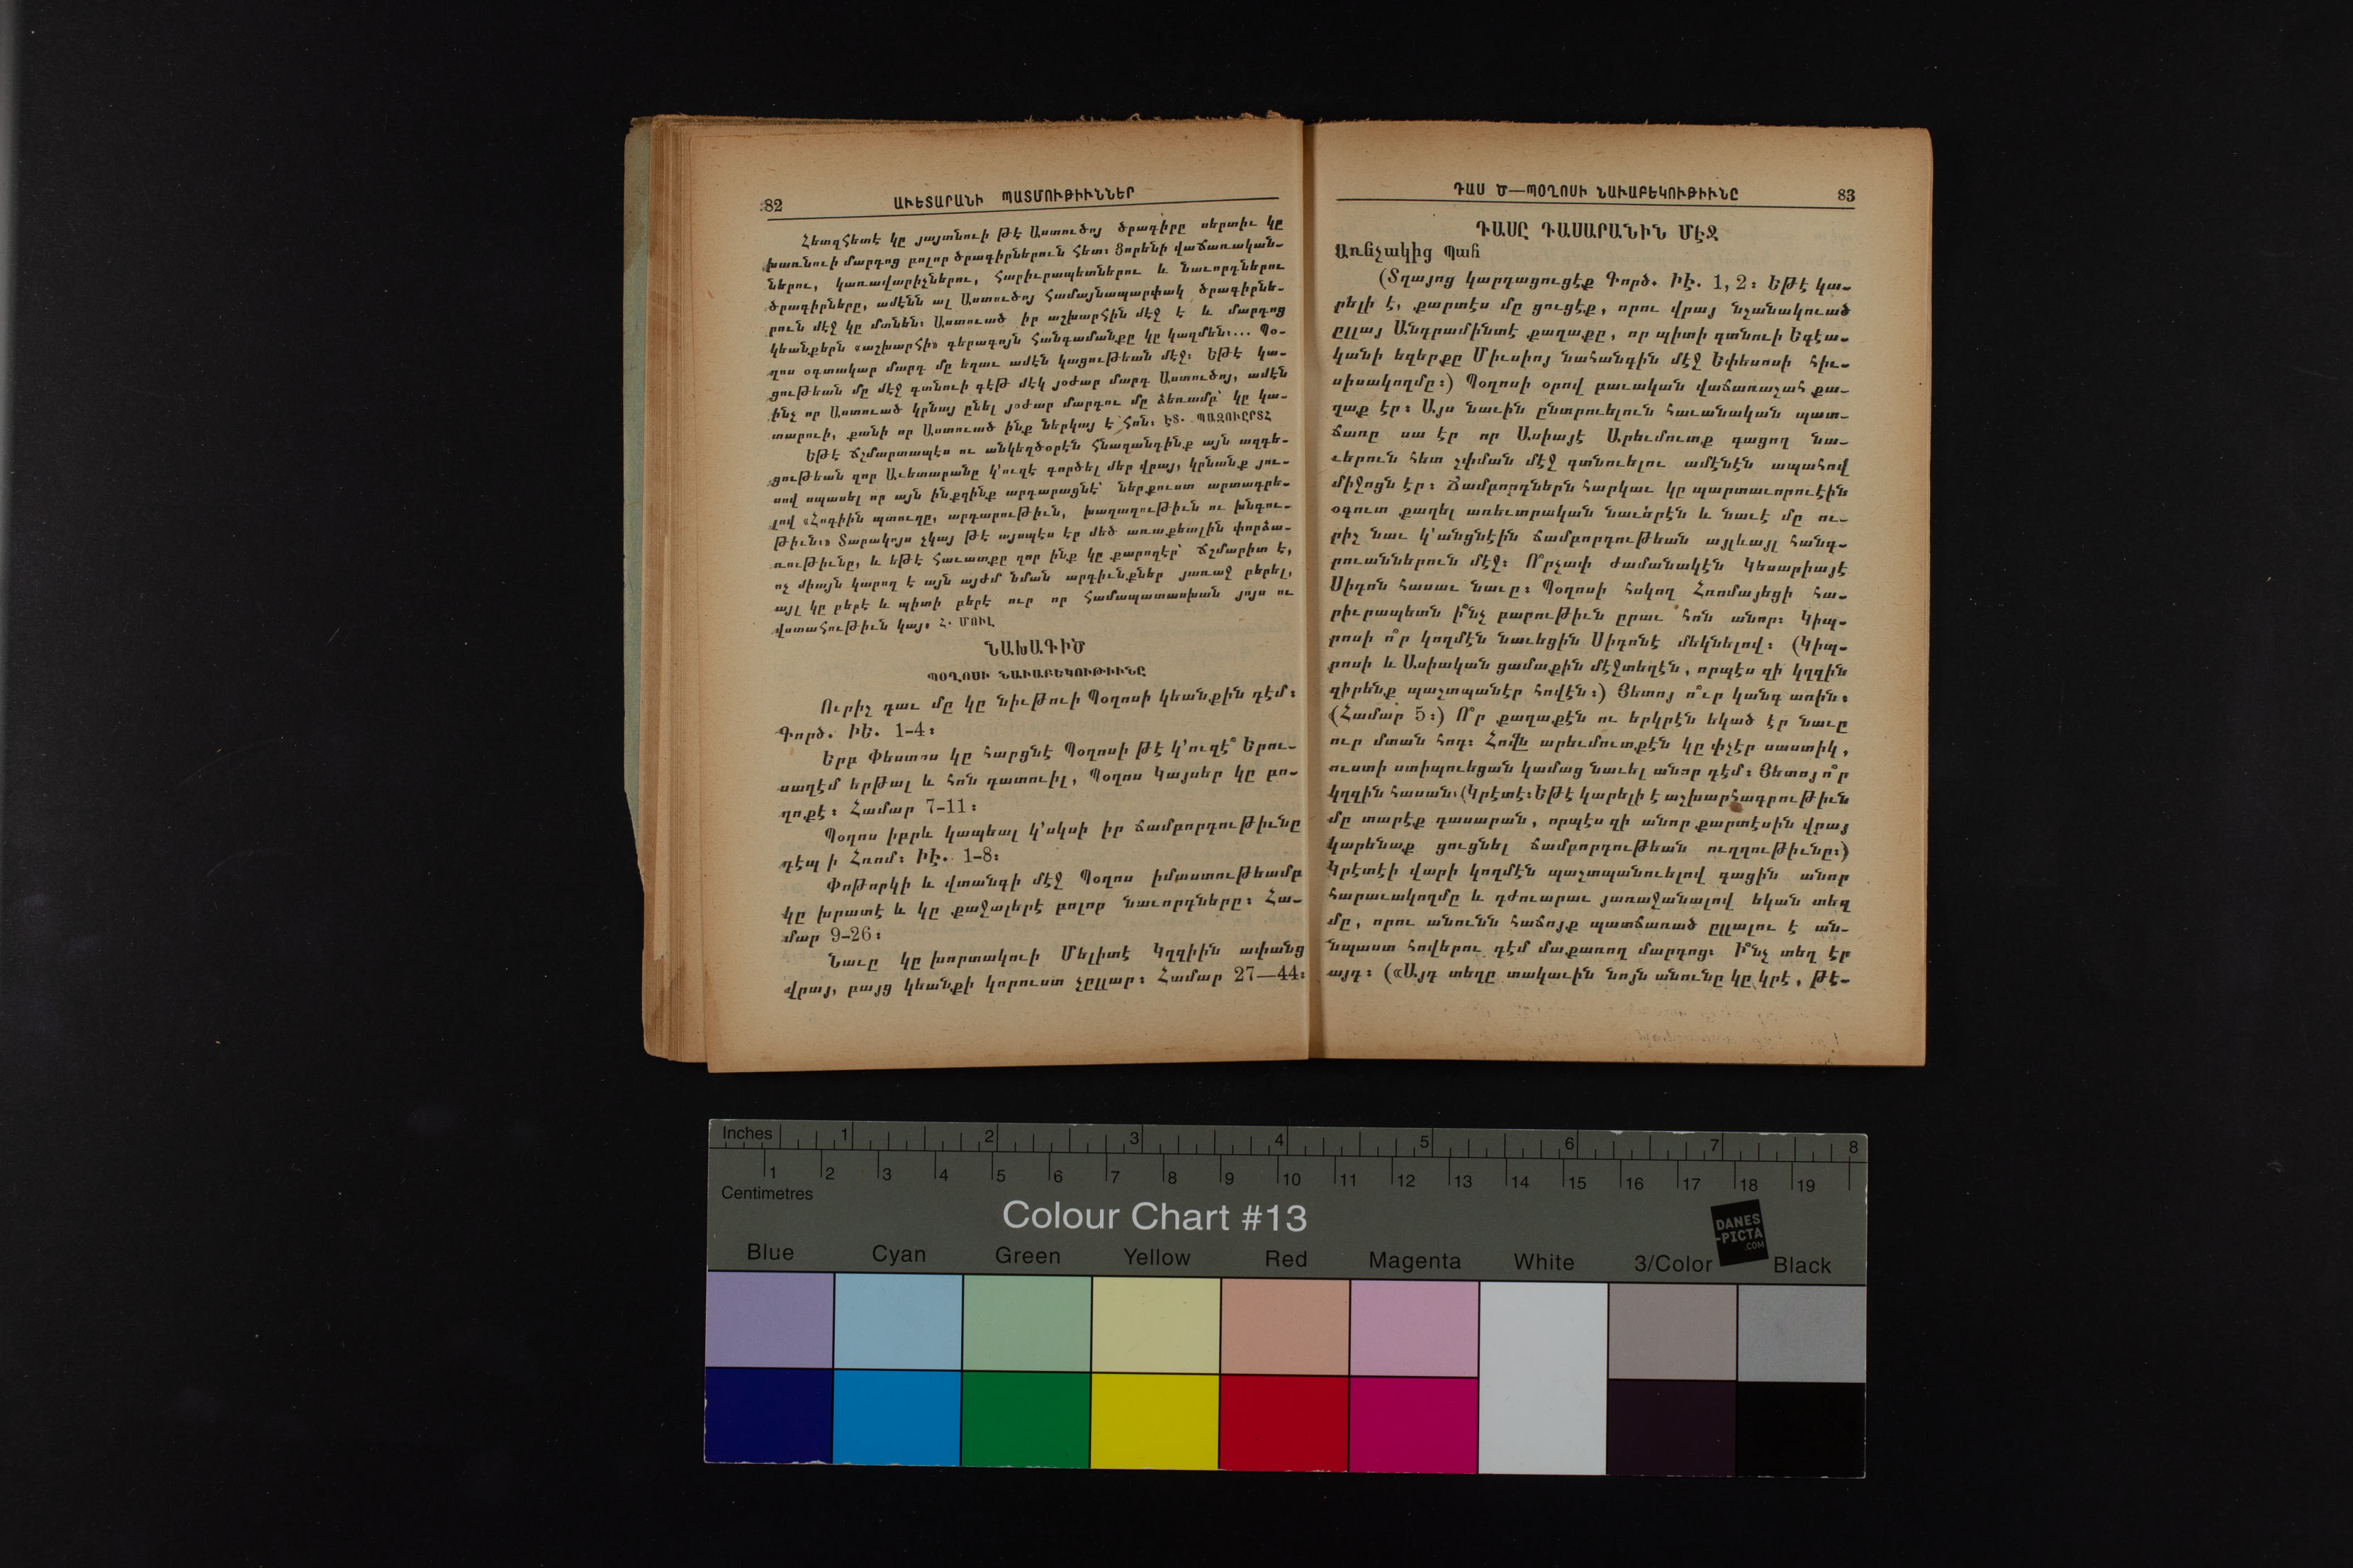 82 ԱՒԵՏԱՐԱՆԻ ՊԱՏՄՈՒԹԻՒՆՆԵՐ
Հետզհետէ կը յայտնուի թէ Աստուծոյ ծրագիրը սերտիւ կը
խառնուի մարդոց բոլոր ծրագիրներուն հետ։ Ցորենի վաճառական-
ներու, կառավարիչներու, հարիւրապետներու և նաւորդներու
ծրագիրները, ամէնն ալ Աստուծոյ համայնապարփակ ծրագիրնե-
րուն մէջ կը մտնեն։ Աստուած իր աշխարհին մէջ է և մարդոց
կեանքերն «աշխարհի» գերագոյն հանգամանքը կը կազմեն։... Պօ-
ղոս օգտակար մարդ մը եղաւ ամէն կացութեան մէջ։ Եթէ կա-
ցութեան մը մէջ գտնուի գէթ մէկ յօժար մարդ Աստուծոյ, ամէն
ինչ որ Աստուած կրնայ ընել յօժար մարդու մը ձեռամբ՝ կը կա-
տարուի, քանի որ Աստուած ինք ներկայ է հոն։ ԷՏ. ՊԱԶՈՒԸՐՏՀ
Եթէ ճշմարտապէս ու անկեղծօրէն հնազանդինք այն ազդե-
ցութեան զոր Աւետարանը կ՚ուզէ գործել մեր վրայ, կրնանք յու-
սով սպասել որ այն ինքզինք արդարացնէ՝ ներքուստ արտադրե-
լով «Հոգիին պտուղը, արդարութիւն, խաղաղութիւն ու խնդու-
թիւն։» Տարակոյս չկայ թէ այսպէս էր մեծ առաքեալին փորձա-
ռութիւնը, և եթէ հաւատքը զոր ինք կը քարոզէր՝ ճշմարիտ է,
ոչ միայն կարող է այն այժմ նման արդիւնքներ յառաջ բերել,
այլ կը բերէ և պիտի բերէ ուր որ համապատասխան յոյս ու
վստահութիւն կայ. Հ. ՄՈՒԼ
ՆԱԽԱԳԻԾ
ՊՕՂՈՍԻ ՆԱՒԱԲԵԿՈՒԹԻՒՆԸ
Ուրիշ դաւ մը կը նիւթուի Պօղոսի կեանքին դէմ։
Գործ. ԻԵ. 1-4։
Երբ Փեստոս կը հարցնէ Պօղոսի թէ կ՚ուզէ՞ Երու-
սաղէմ երթալ և հոն դատուիլ, Պօղոս Կայսեր կը բո-
ղոքէ։ Համար 7-11։
Պօղոս իբրև կապեալ կ՚սկսի իր ճամբորդութիւնը
դէպ ի Հռոմ։ ԻԷ. 1-8։
Փոթորկի և վտանգի մէջ Պօղոս իմաստութեամբ
կը խրատէ և կը քաջալերէ բոլոր նաւորդները։ Հա-
մար 9-26։
Նաւը կը խորտակուի Մելիտէ Կղզիին ափանց
վրայ, բայց կեանքի կորուստ չըլլար։ Համար 27—44։
ԴԱՍ Ծ—ՊՕՂՈՍԻ ՆԱՒԱԲԵԿՈՒԹԻՒՆԸ 83
ԴԱՍԸ ԴԱՍԱՐԱՆԻՆ ՄԷՋ
Առնչակից Պահ
(Տղայոց կարդացուցէք Գործ. ԻԷ. 1, 2։ Եթէ կա-
րելի է, քարտէս մը ցուցէք, որու վրայ նշանակուած
ըլլայ Անդրամինտէ քաղաքը, որ պիտի գտնուի Եգէա-
կանի եզերքը Միւսիոյ նահանգին մէջ Եփեսոսի հիւ-
սիսակողմը։) Պօղոսի օրով բաւական վաճառաշահ քա-
ղաք էր։ Այս նաւին ընտրուելուն հաւանական պատ-
ճառը սա էր որ Ասիայէ Արեւմուտք գացող նա-
ւերուն հետ շփման մէջ գտնուելու ամէնէն ապահով
միջոցն էր։ Ճամբորդներն հարկաւ կը պարտաւորուէին
օգուտ քաղել առեւտրական նաւօրէն և նաւէ մը ու-
րիշ նաւ կ՚անցնէին ճամբորդութեան այլևայլ հանգ-
րուաններուն մէջ։ Ո՞րչափ ժամանակէն Կեսարիայէ
Սիդոն հասաւ նաւը։ Պօղոսի հսկող Հռոմայեցի հա-
րիւրապետն ի՞նչ բարութիւն ըրաւ հոն անոր։ Կիպ-
րոսի ո՞ր կողմէն նաւեցին Սիդոնէ մեկնելով։ (Կիպ-
րոսի և Ասիական ցամաքին մէջտեղէն, որպէս զի կղզին
զիրենք պաշտպանէր հովէն։) Յետոյ ո՞ւր կանգ առին։
(Համար 5։) Ո՞ր քաղաքէն ու երկրէն եկած էր նաւը
ուր մտան հոդ։ Հովն արեւմուտքէն կը փչէր սաստիկ,
ուստի ստիպուեցան կամաց նաւել անոր դէմ։ Յետոյ ո՞ր
կղզին հասան։ (Կրէտէ։ Եթէ կարելի է աշխարհագրութիւն
մը տարէք դասարան, որպէս զի անոր քարտէսին վրայ
կարենաք ցուցնել ճամբորդութեան ուղղութիւնը։)
Կրէտէի վարի կողմէն պաշտպանուելով գացին անոր
հարաւակողմը և դժուարաւ յառաջանալով եկան տեղ
մը, որու անունն հաճոյք պատճառած ըլլալու է ան-
նպաստ հովերու դէմ մաքառող մարդոց։ Ի՞նչ տեղ էր
այդ։ («Այդ տեղը տակաւին նոյն անունը կը կրէ, թէ-
Inches 1 2 3 4 5 6 7 8
1 2 3 4 5 6 7 8 9 10 11 12 13 14 15 16 17 18 19
Centimetres
Colour Chart #13
DANES
-PICTA
.COM
Blue Cyan Green Yellow Red Magenta White 3/Color Black